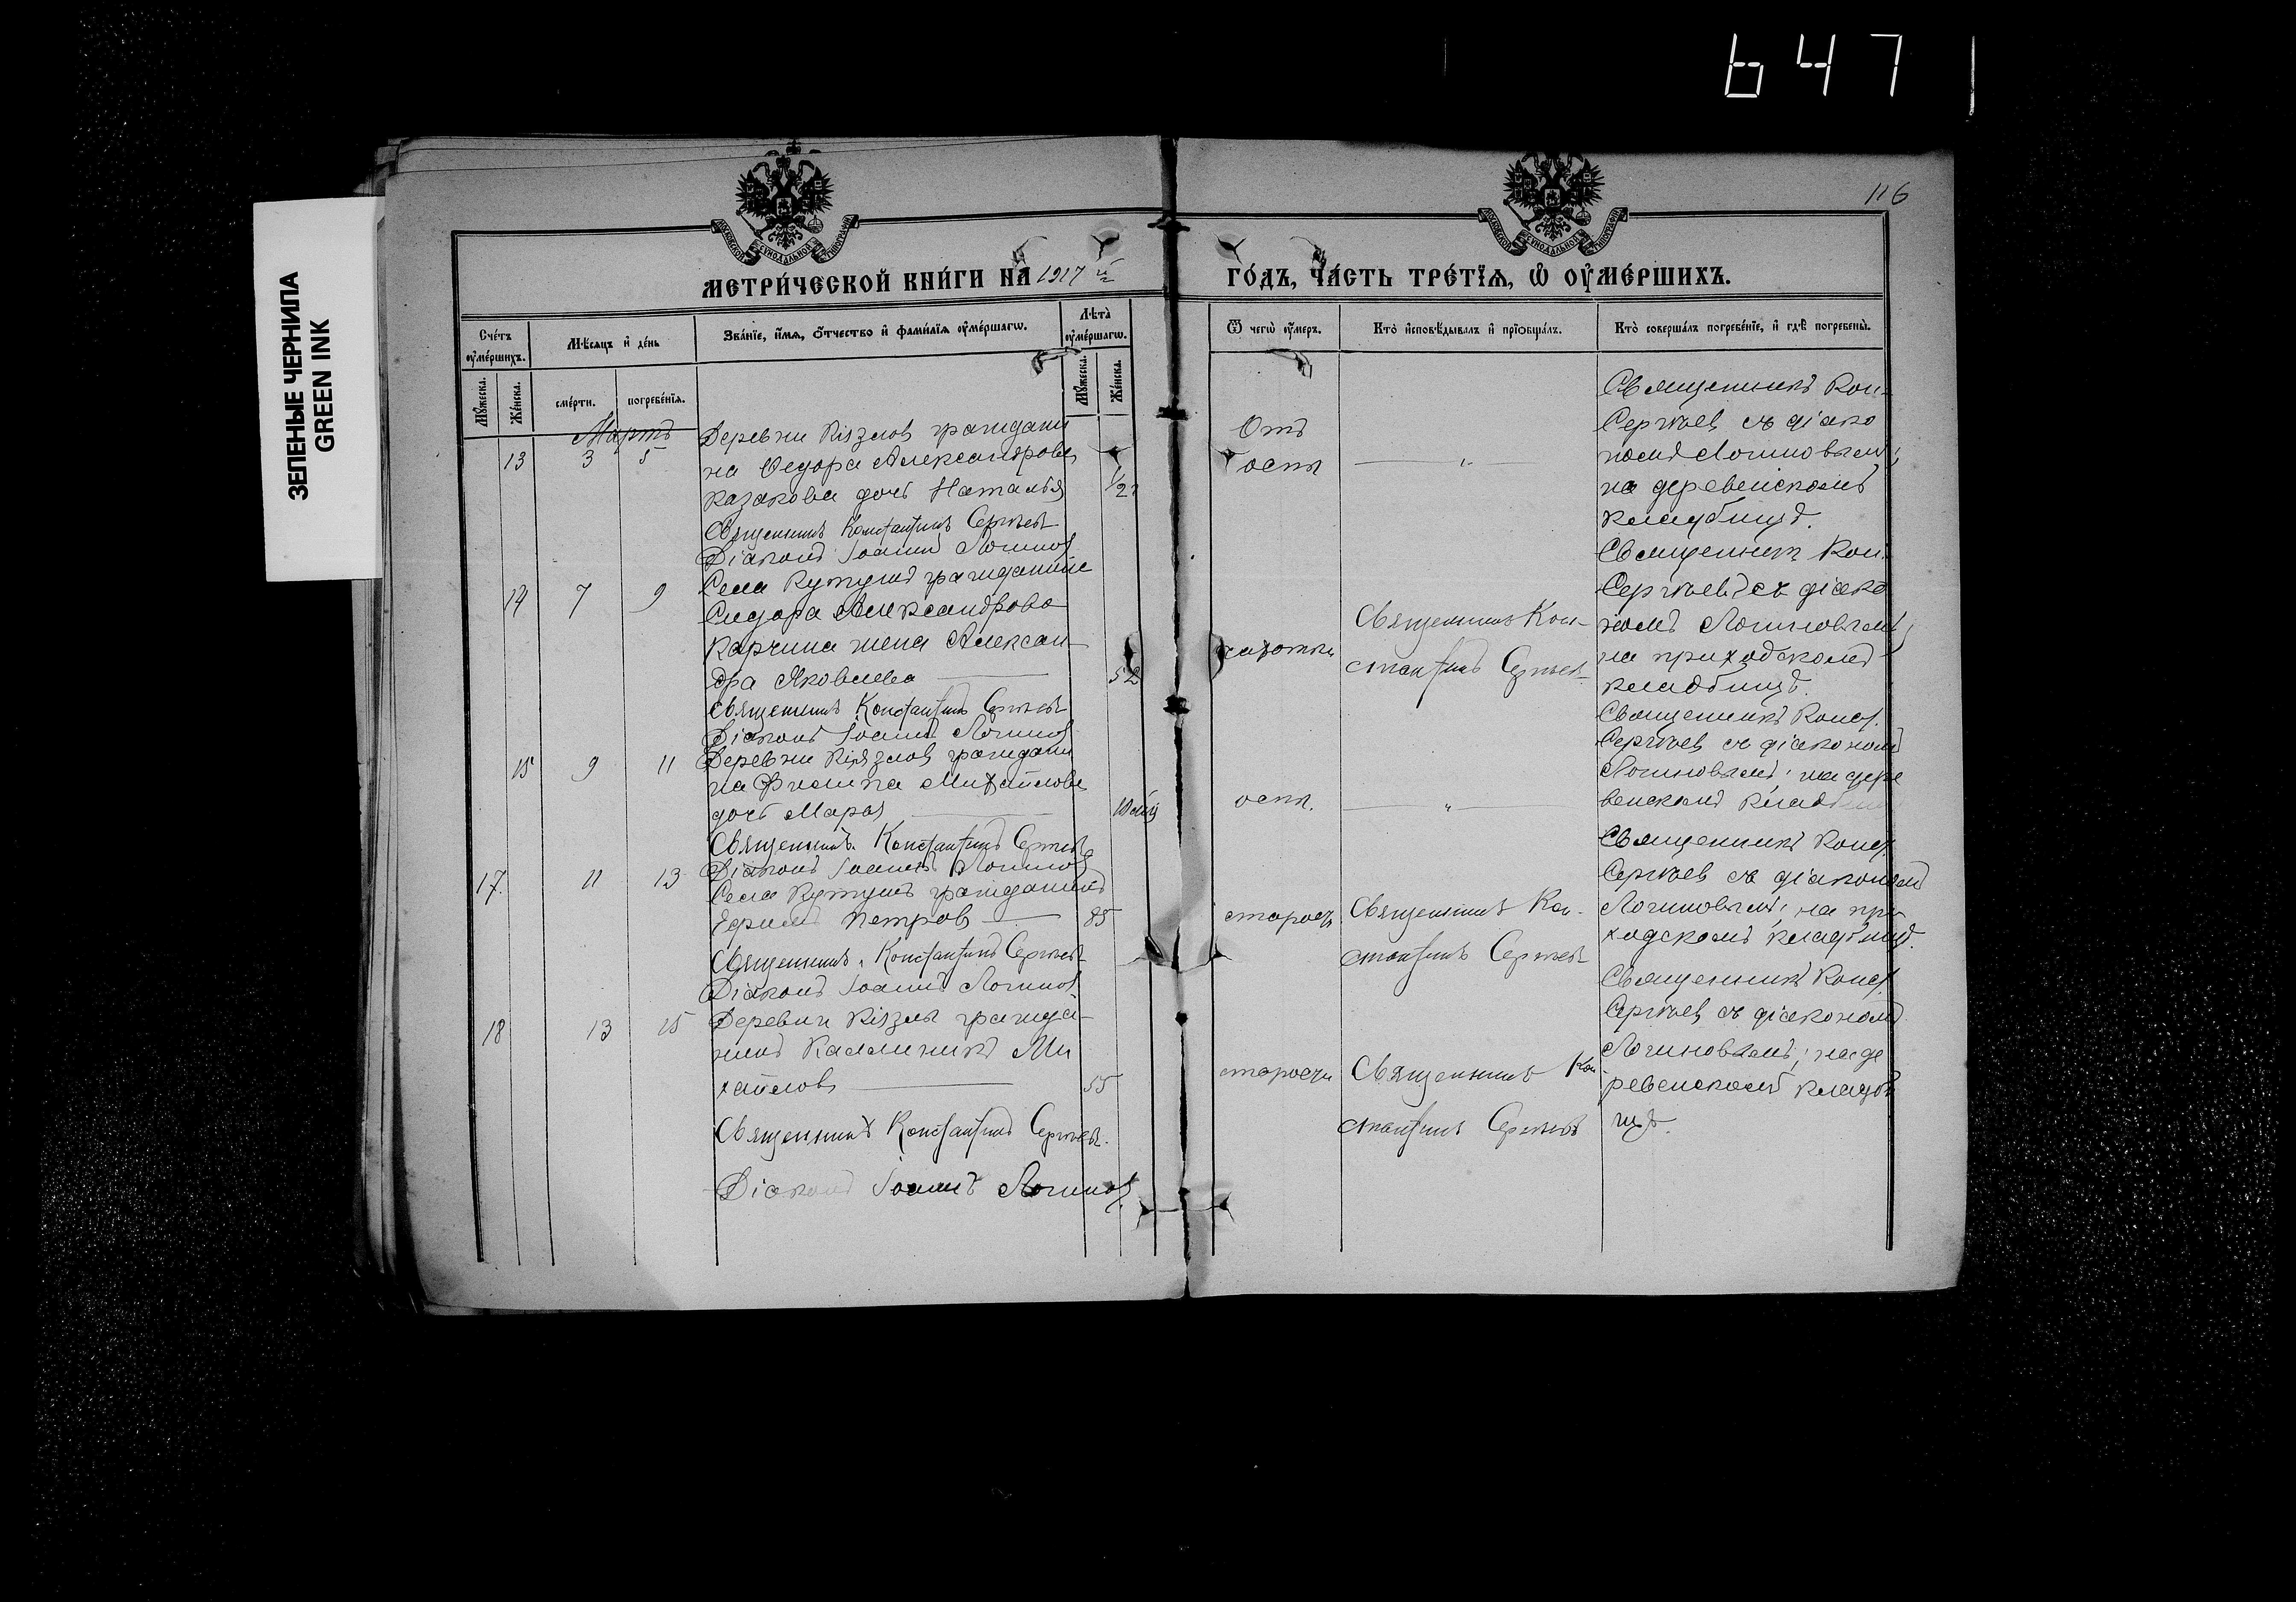 647
ЗЕЛЕНЫЕ ЧЕРНИЛА
GREEN INK
116
МЕТРИ́ЧЕСКОЙ КНИ́ГИ НА 1917 й
ГО́ДЪ, ЧА́СТЬ ТРЕ́ТЇѦ, Ѡ ОУМЕ́РШИХЪ.
Сче́тъ оумершихъ.
Мѣсяцъ и де́нь
Зва́нїе, и́мя, о́тчество и фами́лїя оуме́ршагѡ.
Лѣта̀ оуме́ршагѡ.
Мꙋжеска.
Же́нска.
сме́рти.
погребе́нїя.
Мꙋжеска.
Же́нска.
Ѿ чегѡ̀ оумеръ.
Кто̀ исповѣдывалъ и прїобща́лъ.
Кто̀ соверша́лъ погребе́нїе, и гдѣ погребены̀.
Мартъ
13 3 5
Деревни
граждани
на Ѳедора Александрова
Казакова дочь Наталья
1/2
Священникъ Константинъ Сергѣевъ
Діаконъ Іоаннъ Логиновъ
Отъ
оспы
"
Священникъ Кон.
Сергѣевъ съ діако
номъ Логиновымъ;
на деревенскомъ
кладбищѣ.
14 7 9
Села гражданина
Сидора Александрова
Карчина жена Алексан-
дра Яковлева
52
Священникъ Константинъ Сергѣевъ
Діаконъ Іоаннъ Логиновъ
чахотки
Священникъ Кон-
стантинъ Сергѣевъ
Священникъ Кон.
Сергѣевъ съ діако
номъ Логиновымъ;
на приходскомъ
кладбищѣ.
15 9 11
Деревни
граждани
на Филиппа Михайлова
дочь
Священникъ Константинъ Сергѣевъ
Діаконъ Іоаннъ Логиновъ
оспы.
"
Священникъ Конст.
Сергѣевъ съ діакономъ
Логиновымъ; на дере
венскомъ
17. 11 13
Села гражданинъ
Ефимъ Петровъ
85
Священникъ Константинъ Сергѣевъ
Діаконъ Іоаннъ Логиновъ
Священникъ Кон-
стантинъ Сергѣевъ
Священникъ Конст.
Сергѣевъ съ діакономъ
Логиновымъ; на при
ходскомъ кладбищѣ.
18 13 15
Деревни гражда-
нинъ Каллиникъ Ми
хайловъ
55
Священникъ Константинъ Сергѣевъ.
Діаконъ Іоаннъ Логиновъ.
старости
Священникъ Кон
стантинъ Сергѣевъ
Священникъ Конст.
Сергѣевъ съ діакономъ
Логиновымъ; на де
ревенскомъ кладби
щѣ.